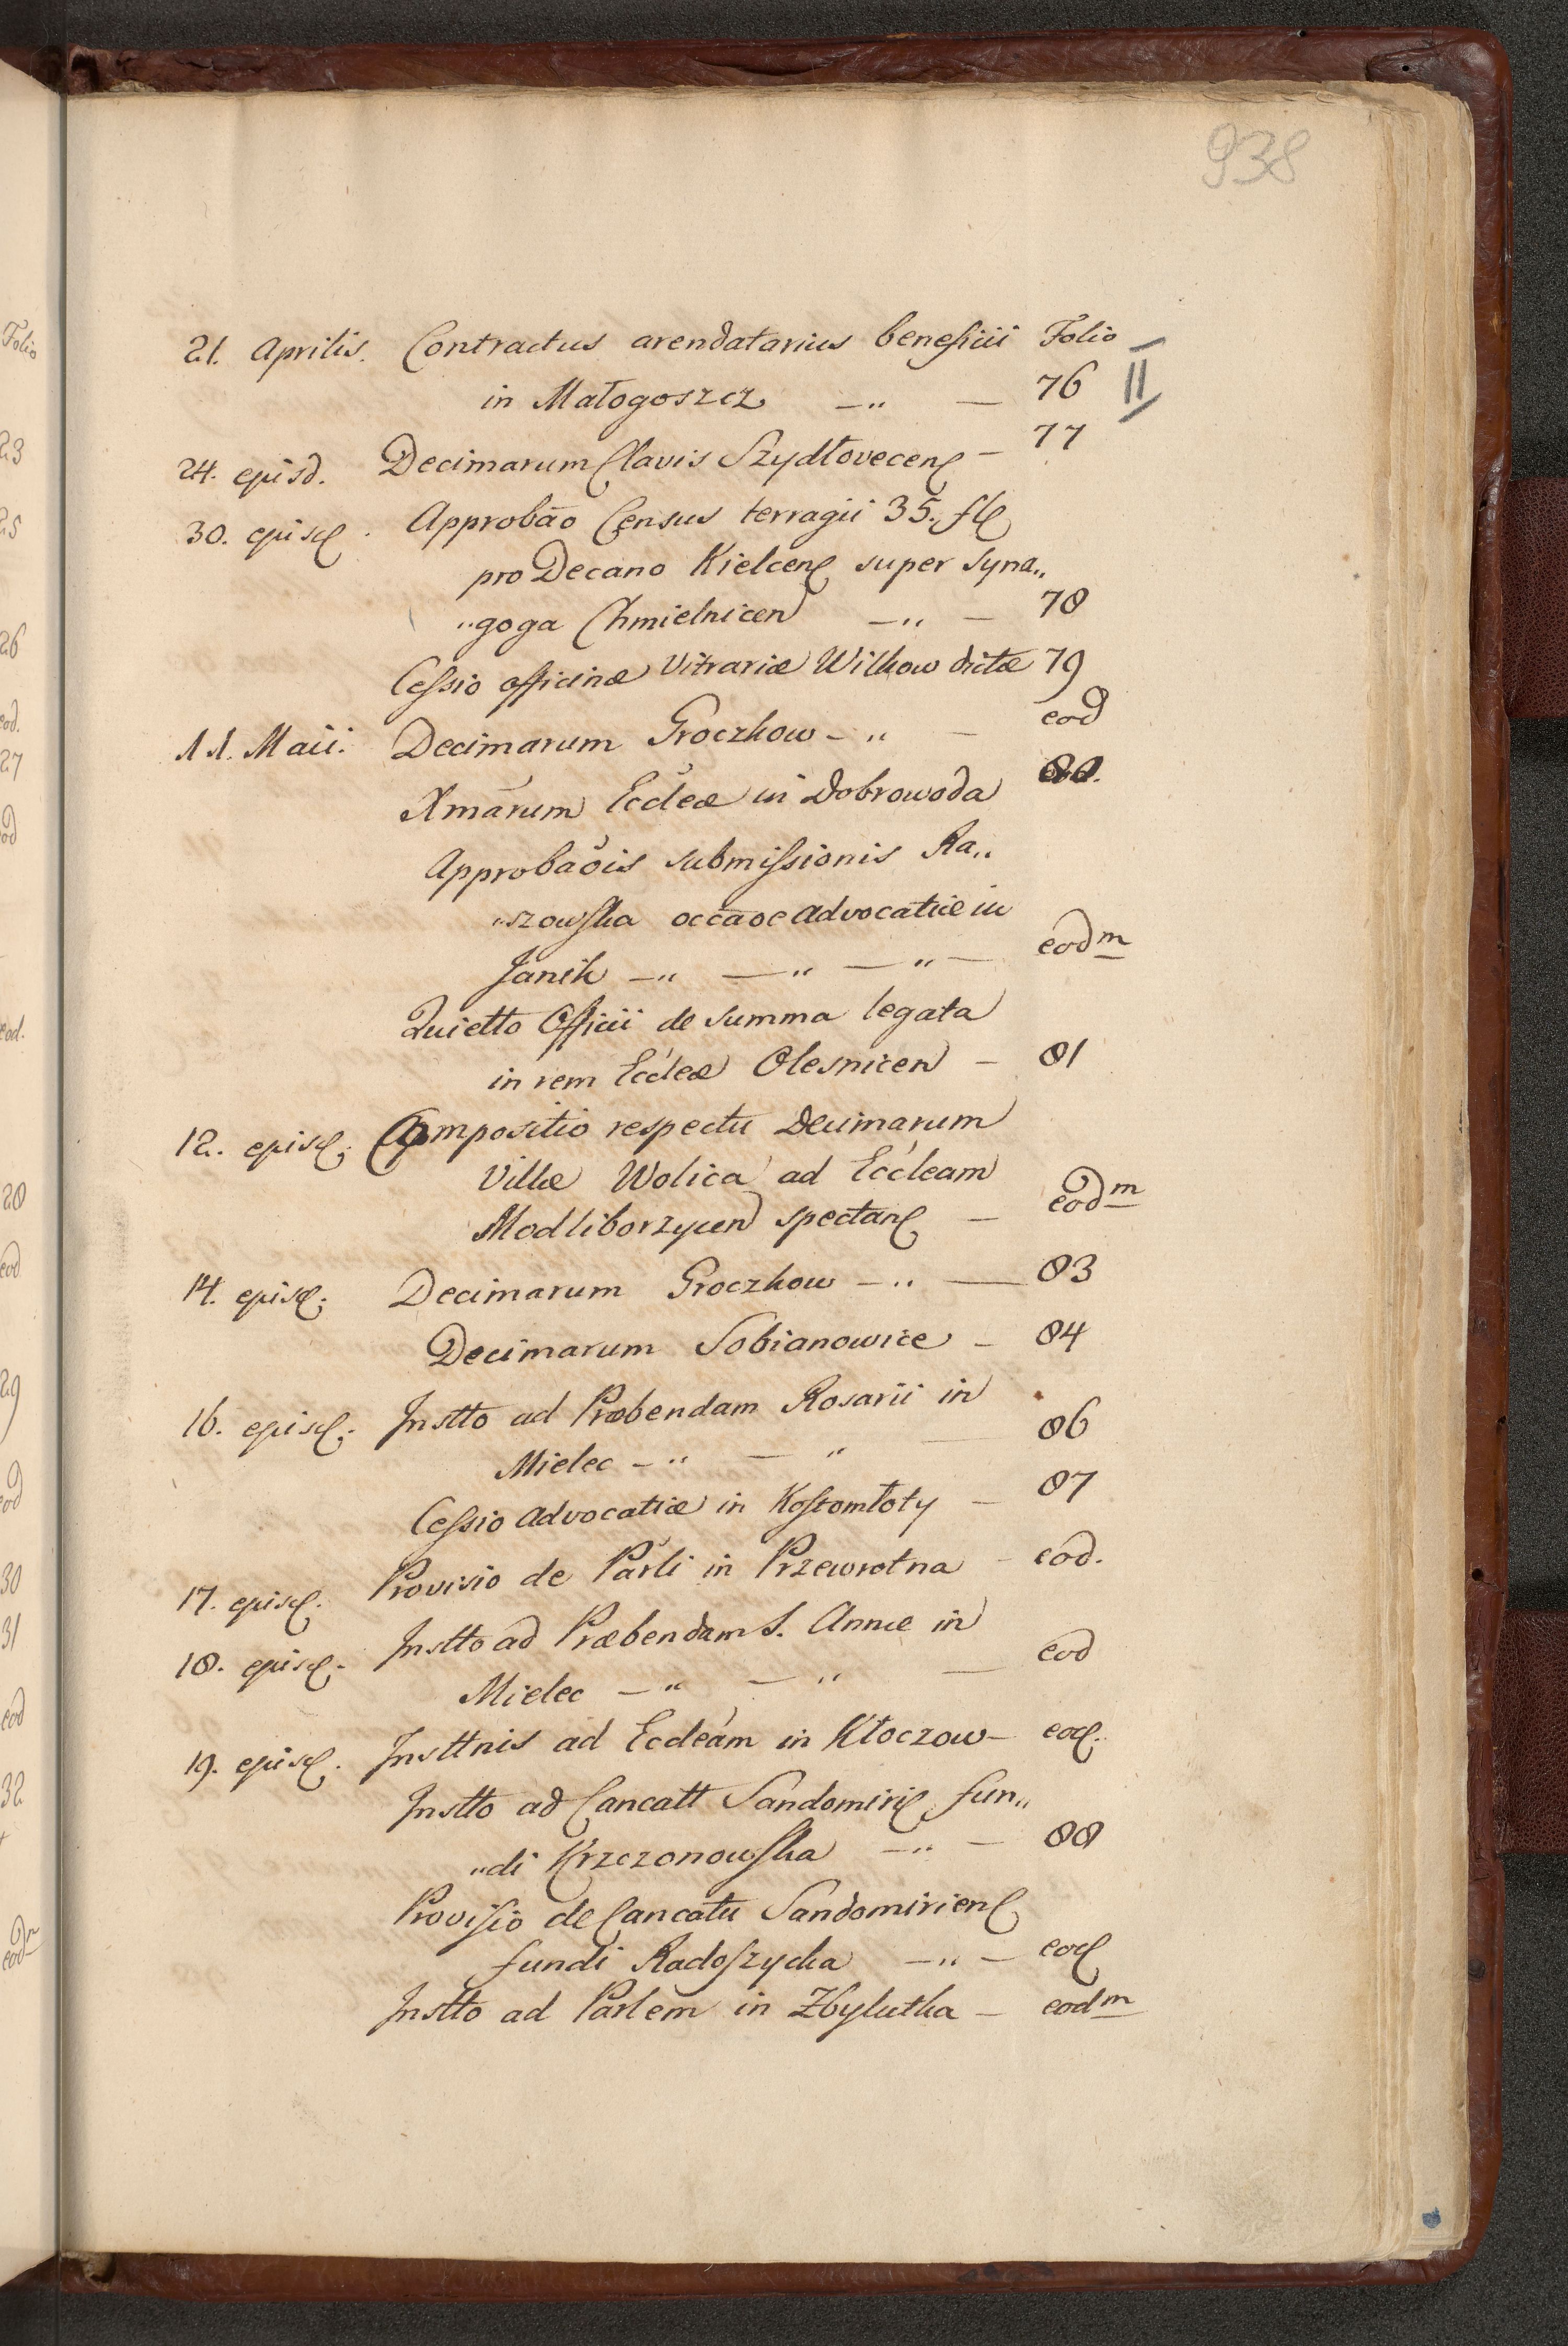 938
21. Aprilis. Contractus arendatarius beneficii Folio
in Małogoszcz —„ — 76 II
24. ejusd. Decimarum Clavis Szydłovecen — 77
30. ejusd. Approbão Census terragii 35. fl
pro Decano Kielcen super Syna„
„goga Chmielnicen —„ — 78
Cessio officinæ Vitrariæ Wilkow dictæ 79
11. Maii. Decimarum Groczkow —„ — eod
Xmarum Eccleæ in Dobrowoda 80.
Approbaõis submissionis Ra„
„szowska occãoe Advocatiæ in
Janik —„ —„ —„— eodm
Quietto Officii de summa legata
in rem Eccleæ Olesnicen — 81
12. ejusd. Compositio respectu Decimarum
Villæ Wolica ad Eccleam
Modliborzycen spectan — eodm
14. ejusd. Decimarum Groczkow —„ — 83
Decimarum Sobianowice — 84
16. ejusd. Instto ad Præbendam Rosarii in
Mielec —„ —„ — 86
Cessio Advocatiæ in Kostomłoty — 87
17. ejusd. Provisio de Parli in Przewrotna — eod.
18. ejusd. Instto ad Præbendam S. Annæ in
Mielec —„ —„ — eod
19. ejusd. Insttnis ad Eccleam in Kłoczow — eod.
Instto ad Cancatt Sandomiri fun„
„di Krzczonowska —„ — 88
Provisio de Cancatu Sandomirien
fundi Radoszycka —„ — eod
Instto ad Parlem in Zbylutka — eodm